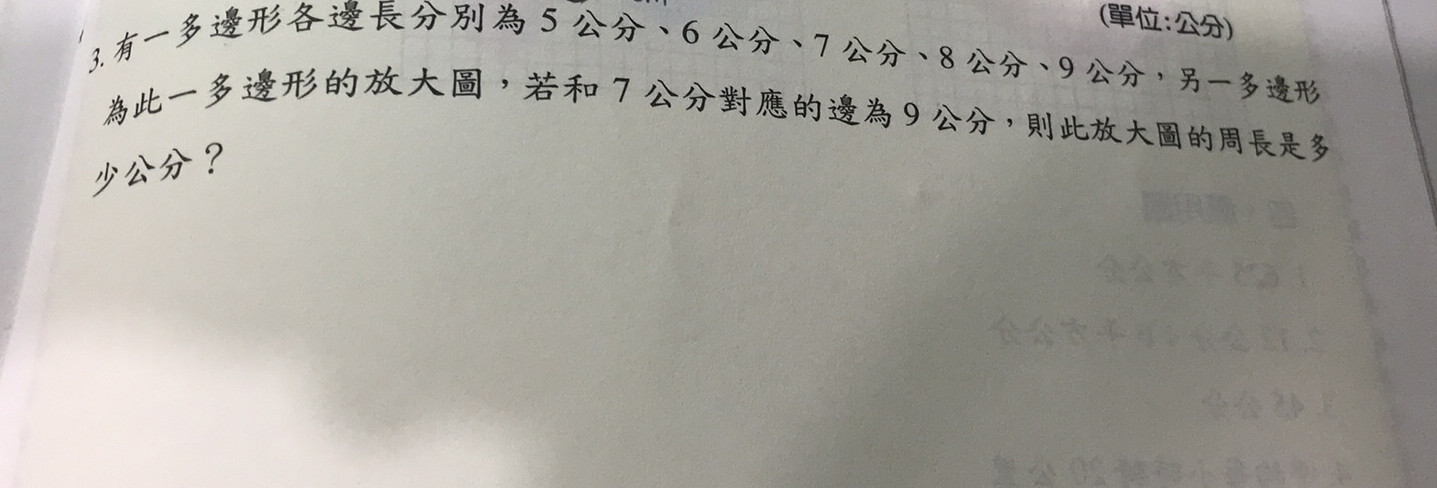 (單位:公分)
3. 有一多邊形各邊長分別為 5 公分、6 公分、7 公分、8 公分、9 公分,另一多邊形
為此一多邊形的放大圖,若和 7 公分對應的邊為 9 公分,則此放大圖的周長是多
少公分?